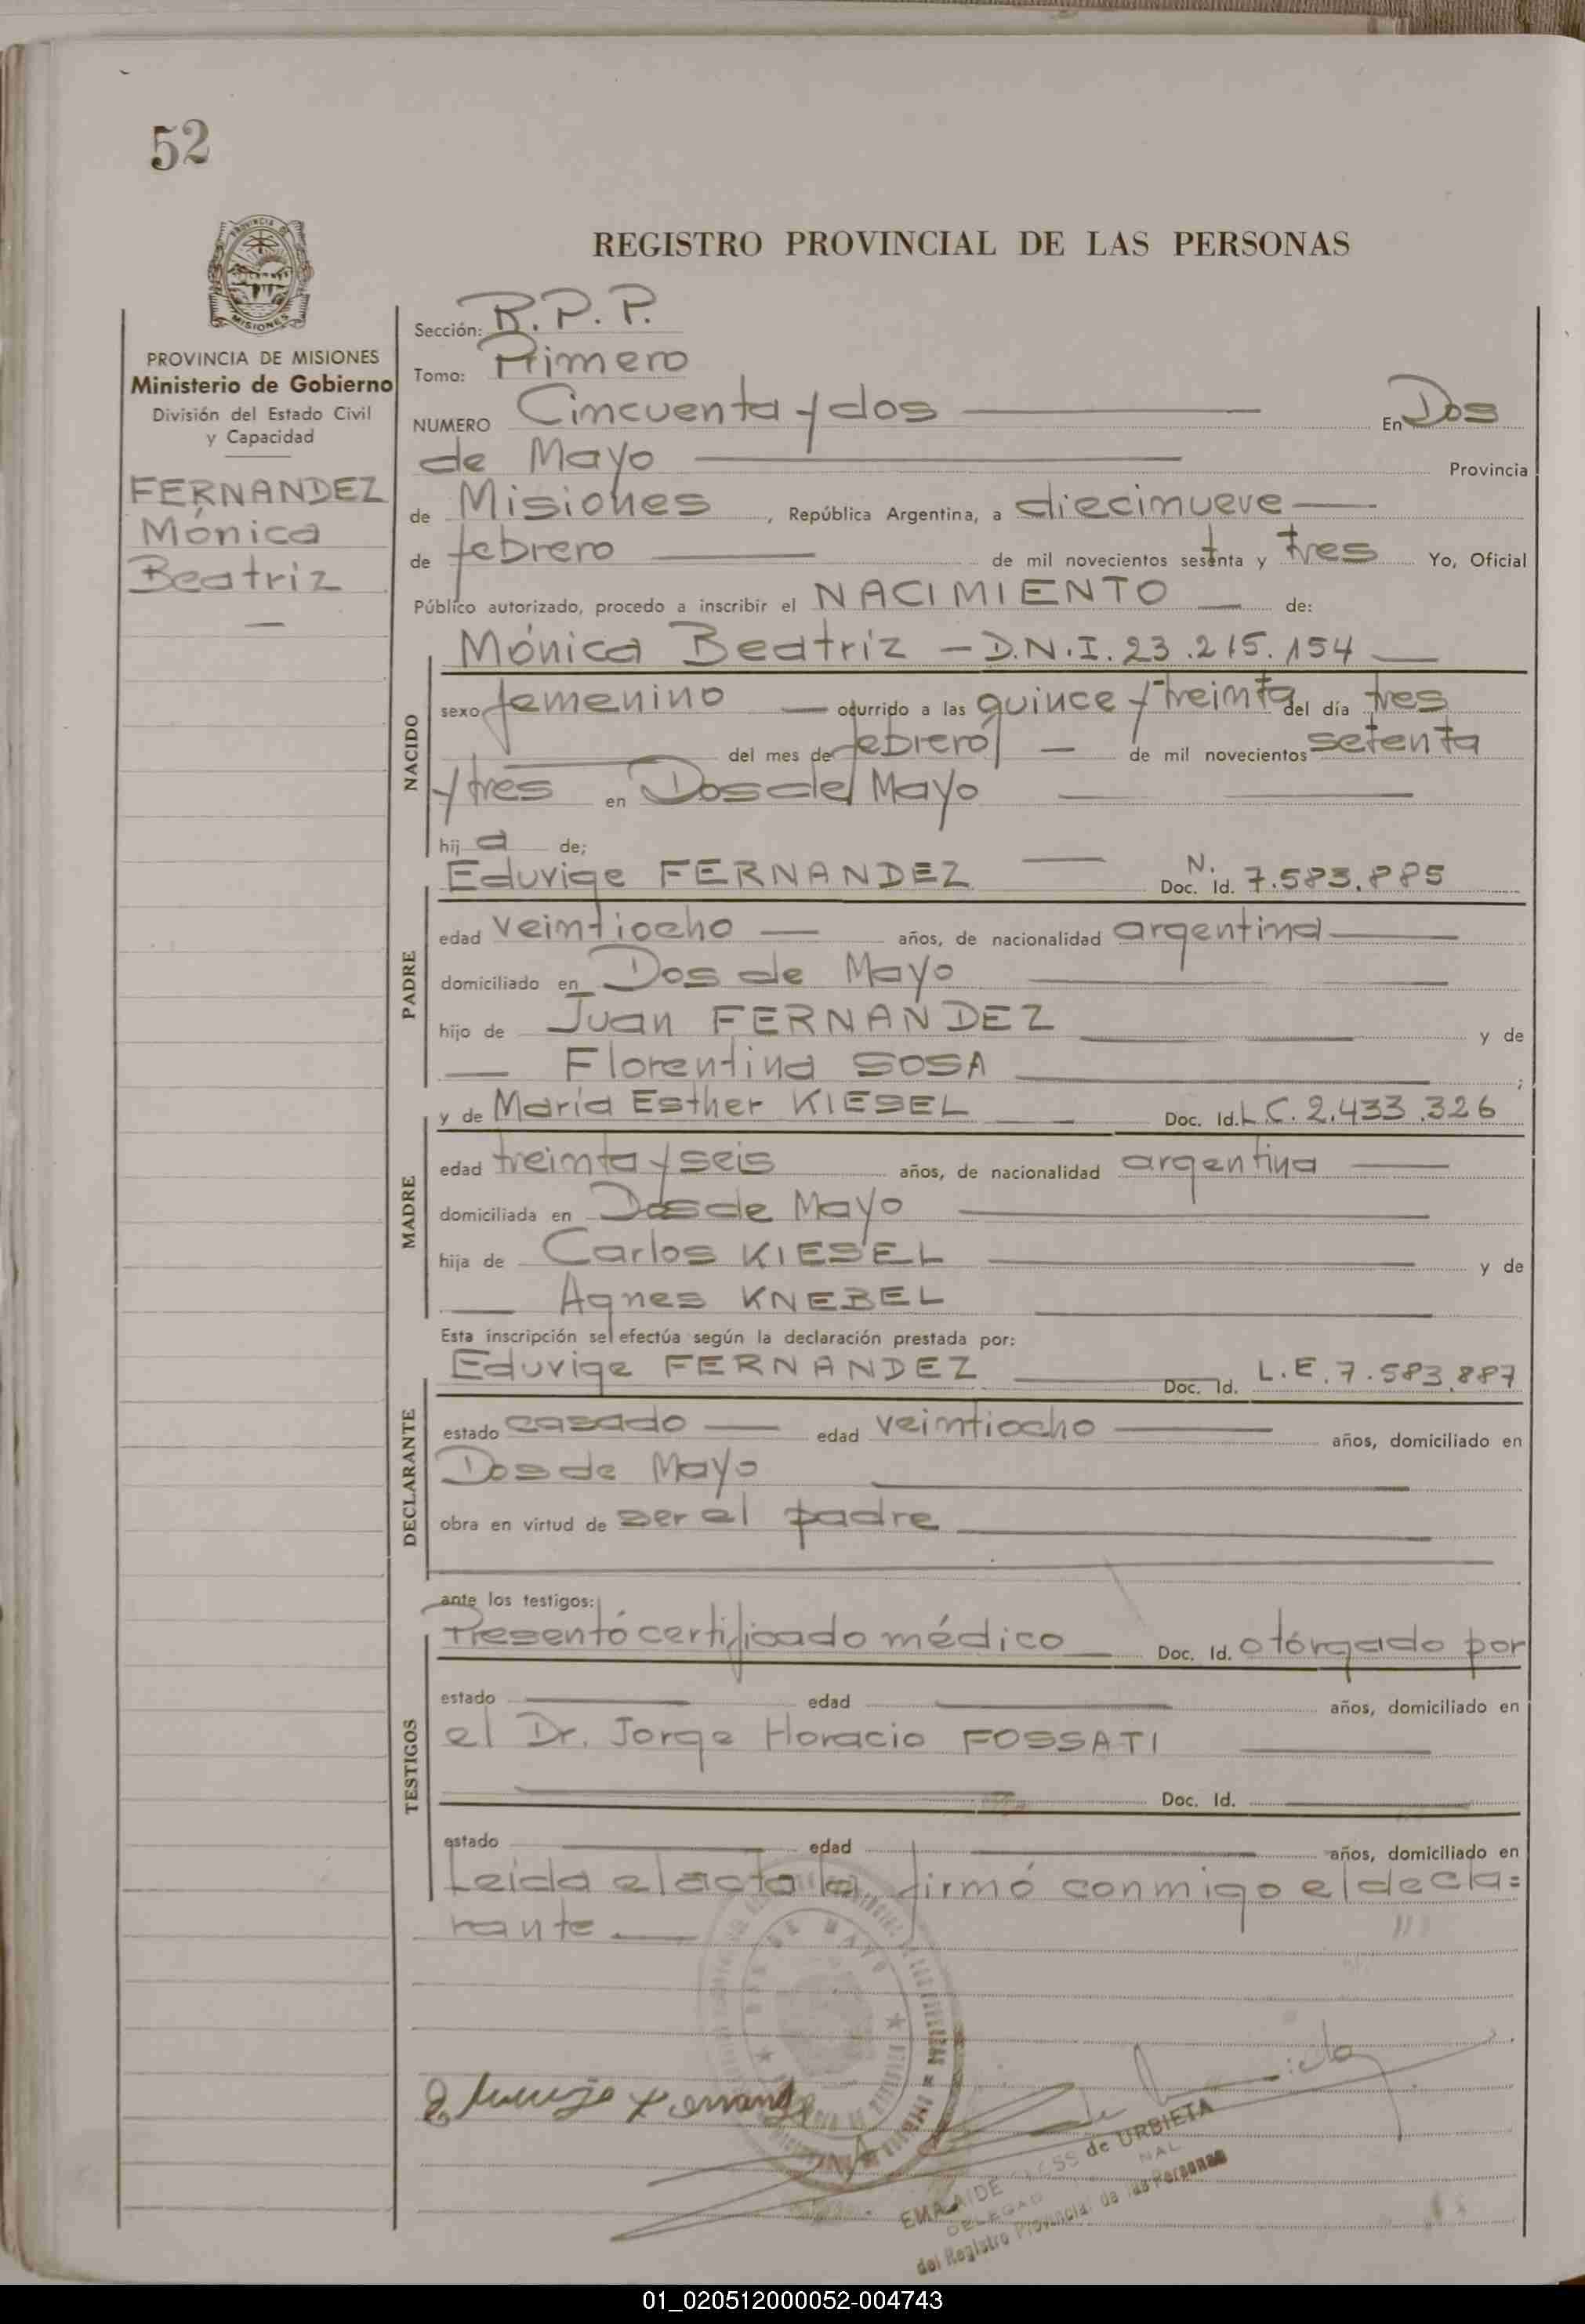 52
PROVINCIA DE
MISIONES
REGISTRO PROVINCIAL DE LAS PERSONAS
PROVINCIA DE MISIONES
Ministerio de Gobierno
División del Estado Civil
y Capacidad
FERNANDEZ
Mónica
Beatriz
Sección: R.P.P.
Tomo: Primero
NUMERO Cincuenta y dos En Dos
de Mayo Provincia
de Misiones, República Argentina, a diecinueve
de febrero de mil novecientos setenta y tres Yo, Oficial
Público autorizado, procedo a inscribir el NACIMIENTO de:
Mónica Beatriz - D.N.I. 23.215.154
NACIDO
sexo femenino ocurrido a las quince y treinta del día tres
del mes de febrero de mil novecientos setenta
y tres en Dos de Mayo
hij a de;
Eduvige FERNANDEZ N. Doc. Id. 7.583.885
PADRE
edad veintiocho años, de nacionalidad argentina
domiciliado en Dos de Mayo
hijo de Juan FERNANDEZ y de
Florentina SOSA ;
y de María Esther KIESEL Doc. Id. L.C. 2.433.326
MADRE
edad treinta y seis años, de nacionalidad argentina
domiciliada en Dos de Mayo
hija de Carlos KIESEL y de
Agnes KNEBEL
Esta inscripción se efectúa según la declaración prestada por:
Eduvige FERNANDEZ Doc. Id. L.E. 7.583.887
DECLARANTE
estado casado edad veintiocho años, domiciliado en
Dos de Mayo
obra en virtud de ser el padre
ante los testigos:
Presentó certificado médico Doc. Id. otorgado por
TESTIGOS
estado edad años, domiciliado en
el Dr. Jorge Horacio FOSSATI
Doc. Id.
estado edad años, domiciliado en
Leída el acta la firmó conmigo el decla=
rante
de URBIETA
del Registro Provincial de las Personas
01_020512000052-004743